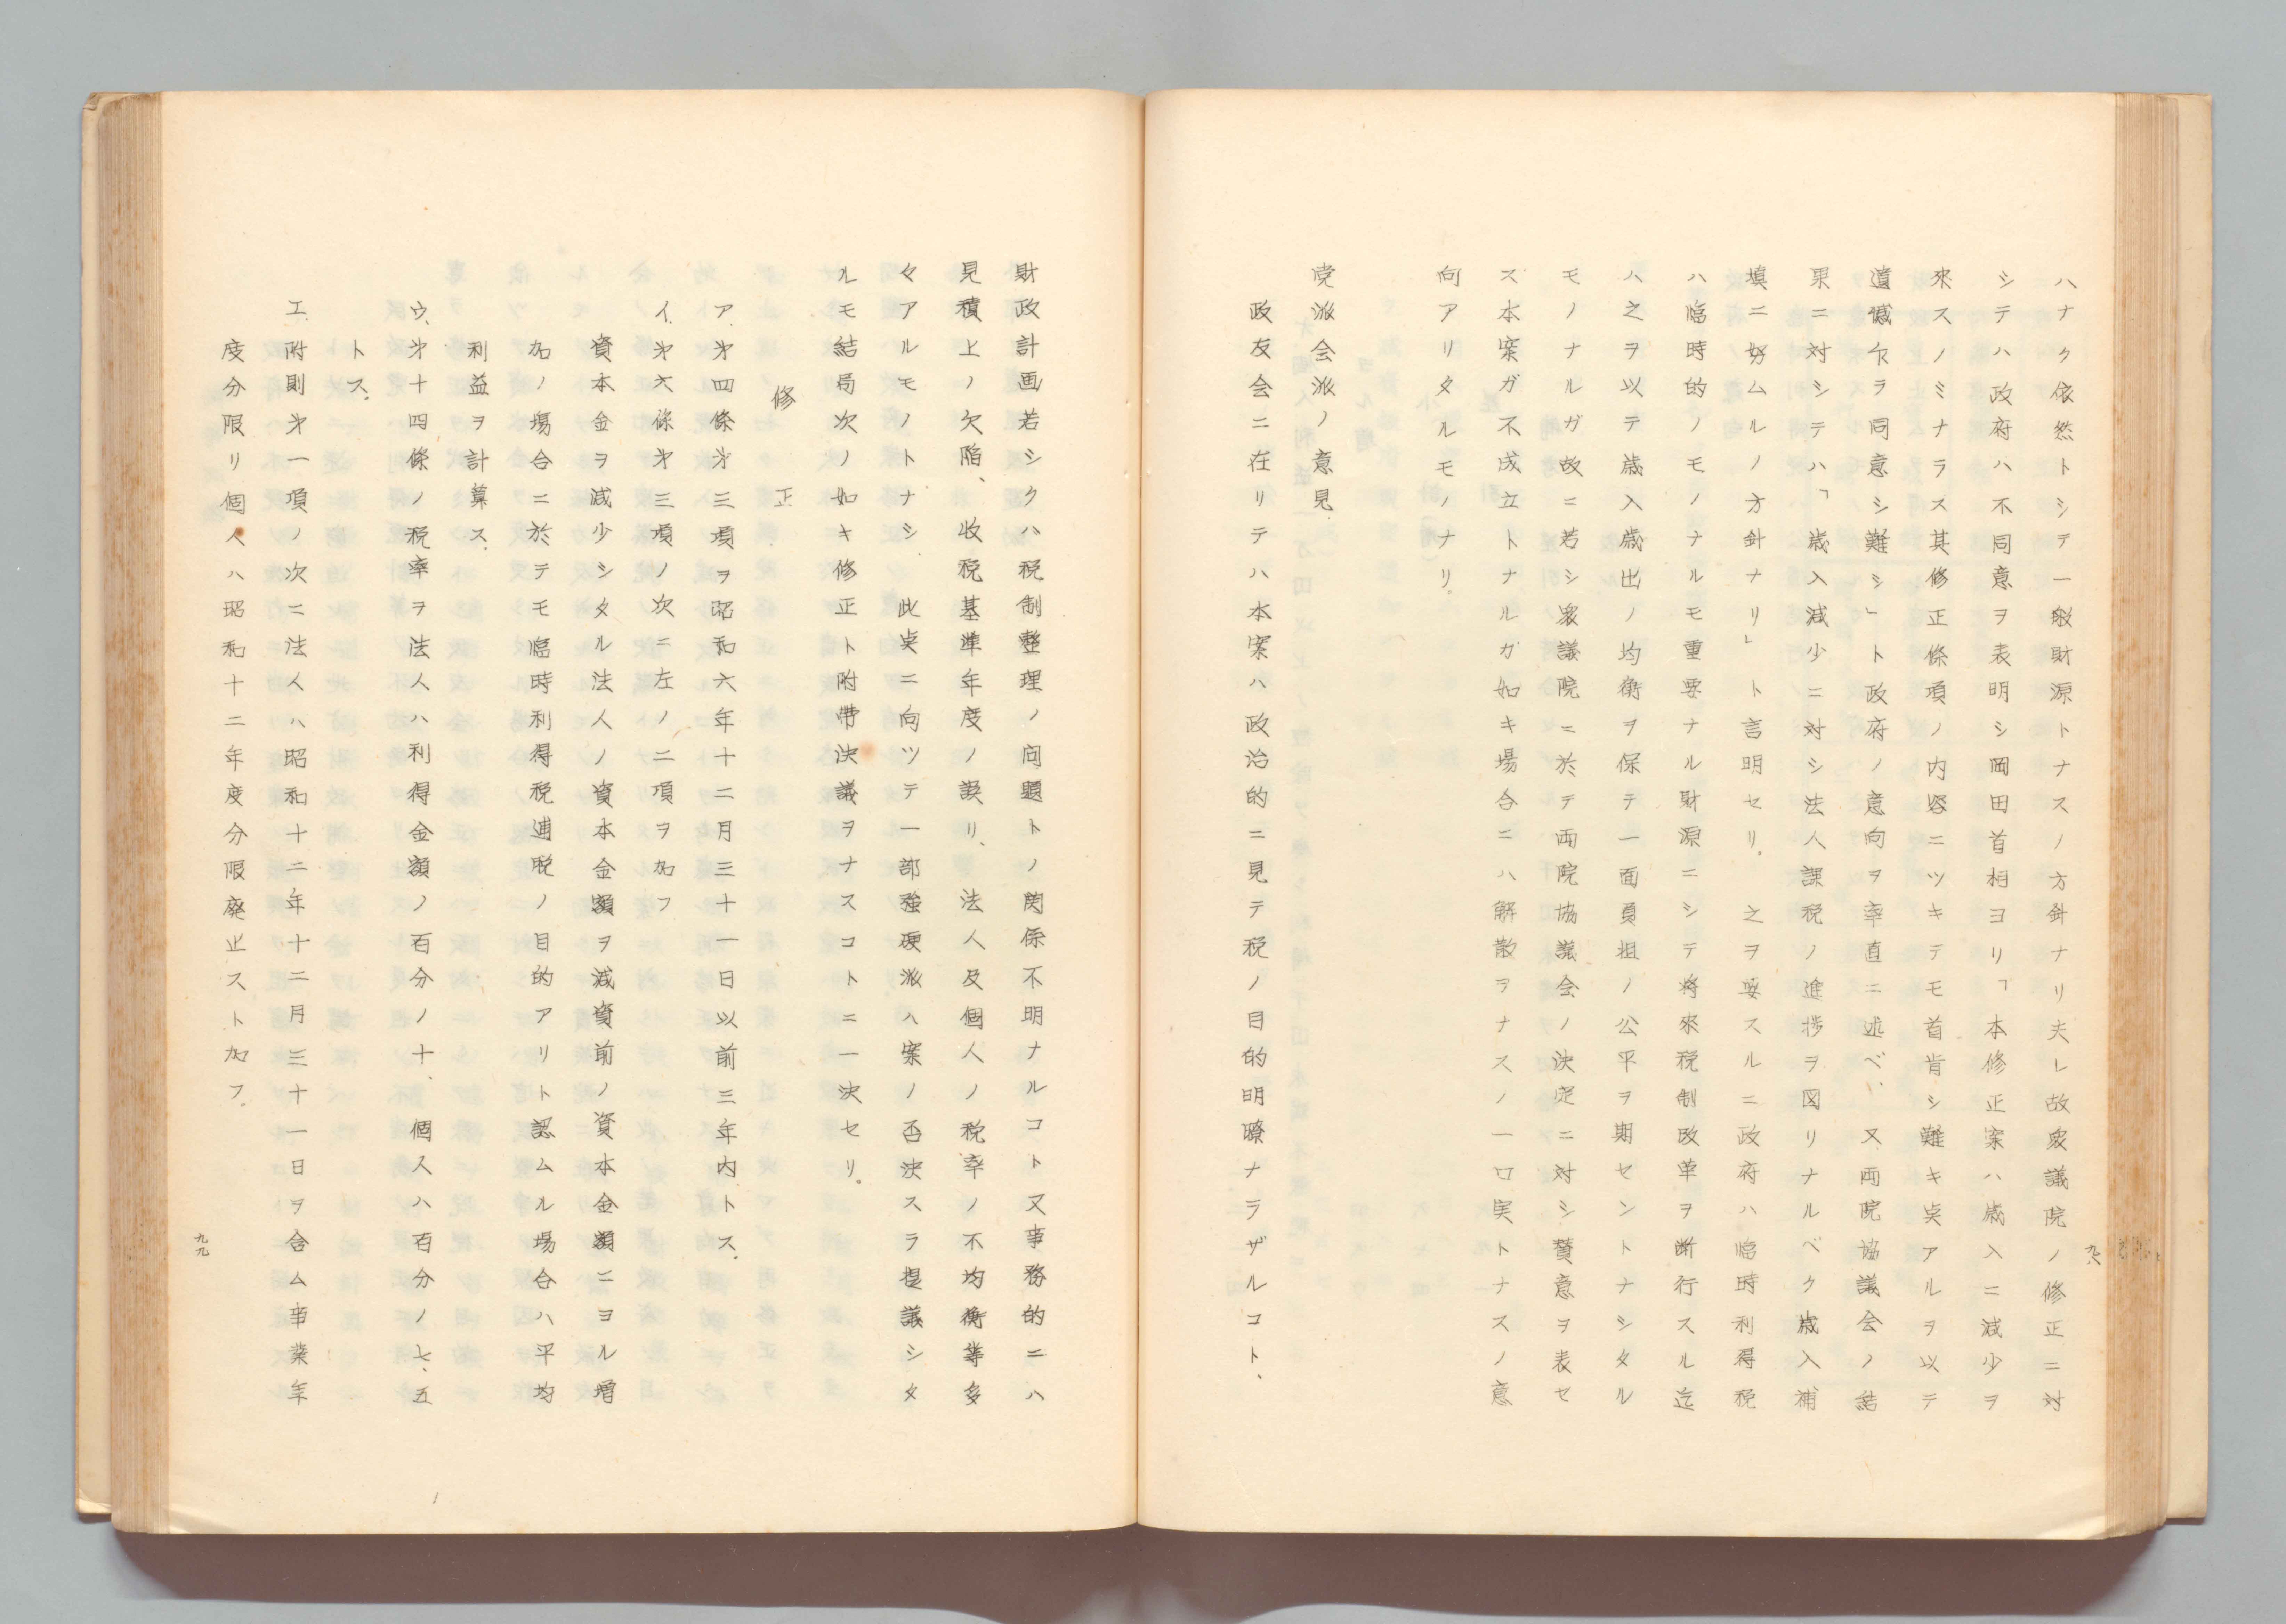 ハナク依然トシテ一般財源トナスノ方針ナリ夫レ故衆議院ノ修正ニ対
シテハ政府ハ不同意ヲ表明シ岡田首相ヨリ「本修正案ハ歳入ニ減少ヲ
來スノミナラス其修正條項ノ内容ニツキテモ首肯シ難キ点アルヲ以テ
遺憾乍ラ同意シ難シ」ト政府ノ意向ヲ率直ニ述ベ、又両院協議会ノ結
果ニ対シテハ「歳入減少ニ対シ法人課税ノ進捗ヲ図リナルベク歳入補
填ニ努ムルノ方針ナリ」ト言明セリ。之ヲ要スルニ政府ハ臨時利得税
ハ臨時的ノモノナルモ重要ナル財源ニシテ将來税制改革ヲ断行スル迄
ハ之ヲ以テ歳入歳出ノ均衡ヲ保テ一面負担ノ公平ヲ期セントナシタル
モノナルガ故ニ若シ衆議院ニ於テ両院協議会ノ決定ニ対シ賛意ヲ表セ
ス本案ガ不成立トナルガ如キ場合ニハ解散ヲナスノ一口実トナスノ意
向アリタルモノナリ。
党派会派ノ意見
政友会ニ在リテハ本案ハ政治的ニ見テ税ノ目的明瞭ナラザルコト、
九八
財政計画若シクハ税制整理ノ问題トノ関係不明ナルコト又事務的ニハ
見積上ノ欠陥、收税基準年度ノ誤リ、法人及個人ノ税率ノ不均衡等多
々アルモノトナシ此点ニ向ツテ一部強硬派ハ案ノ否決スラ提議シタ
ルモ結局次ノ如キ修正ト附帶決議ヲナスコトニ一決セリ。
修正
ア.才四條才三項ヲ昭和六年十二月三十一日以前三年内トス。
イ.才六條才三項ノ次ニ左ノ二項ヲ加フ
資本金ヲ減少シタル法人ノ資本金額ヲ減資前ノ資本金額ニヨル増
加ノ場合ニ於テモ臨時利得税逋脱ノ目的アリト認ムル場合ハ平均
利益ヲ計算ス.
ウ、才十四條ノ税率ヲ法人ハ利得金額ノ百分ノ十、個人ハ百分ノ七、五
トス。
エ.附則才一項ノ次ニ法人ハ昭和十二年十二月三十一日ヲ含ム事業年
度分限リ個人ハ昭和十二年度分限廃止スト加フ。
九九